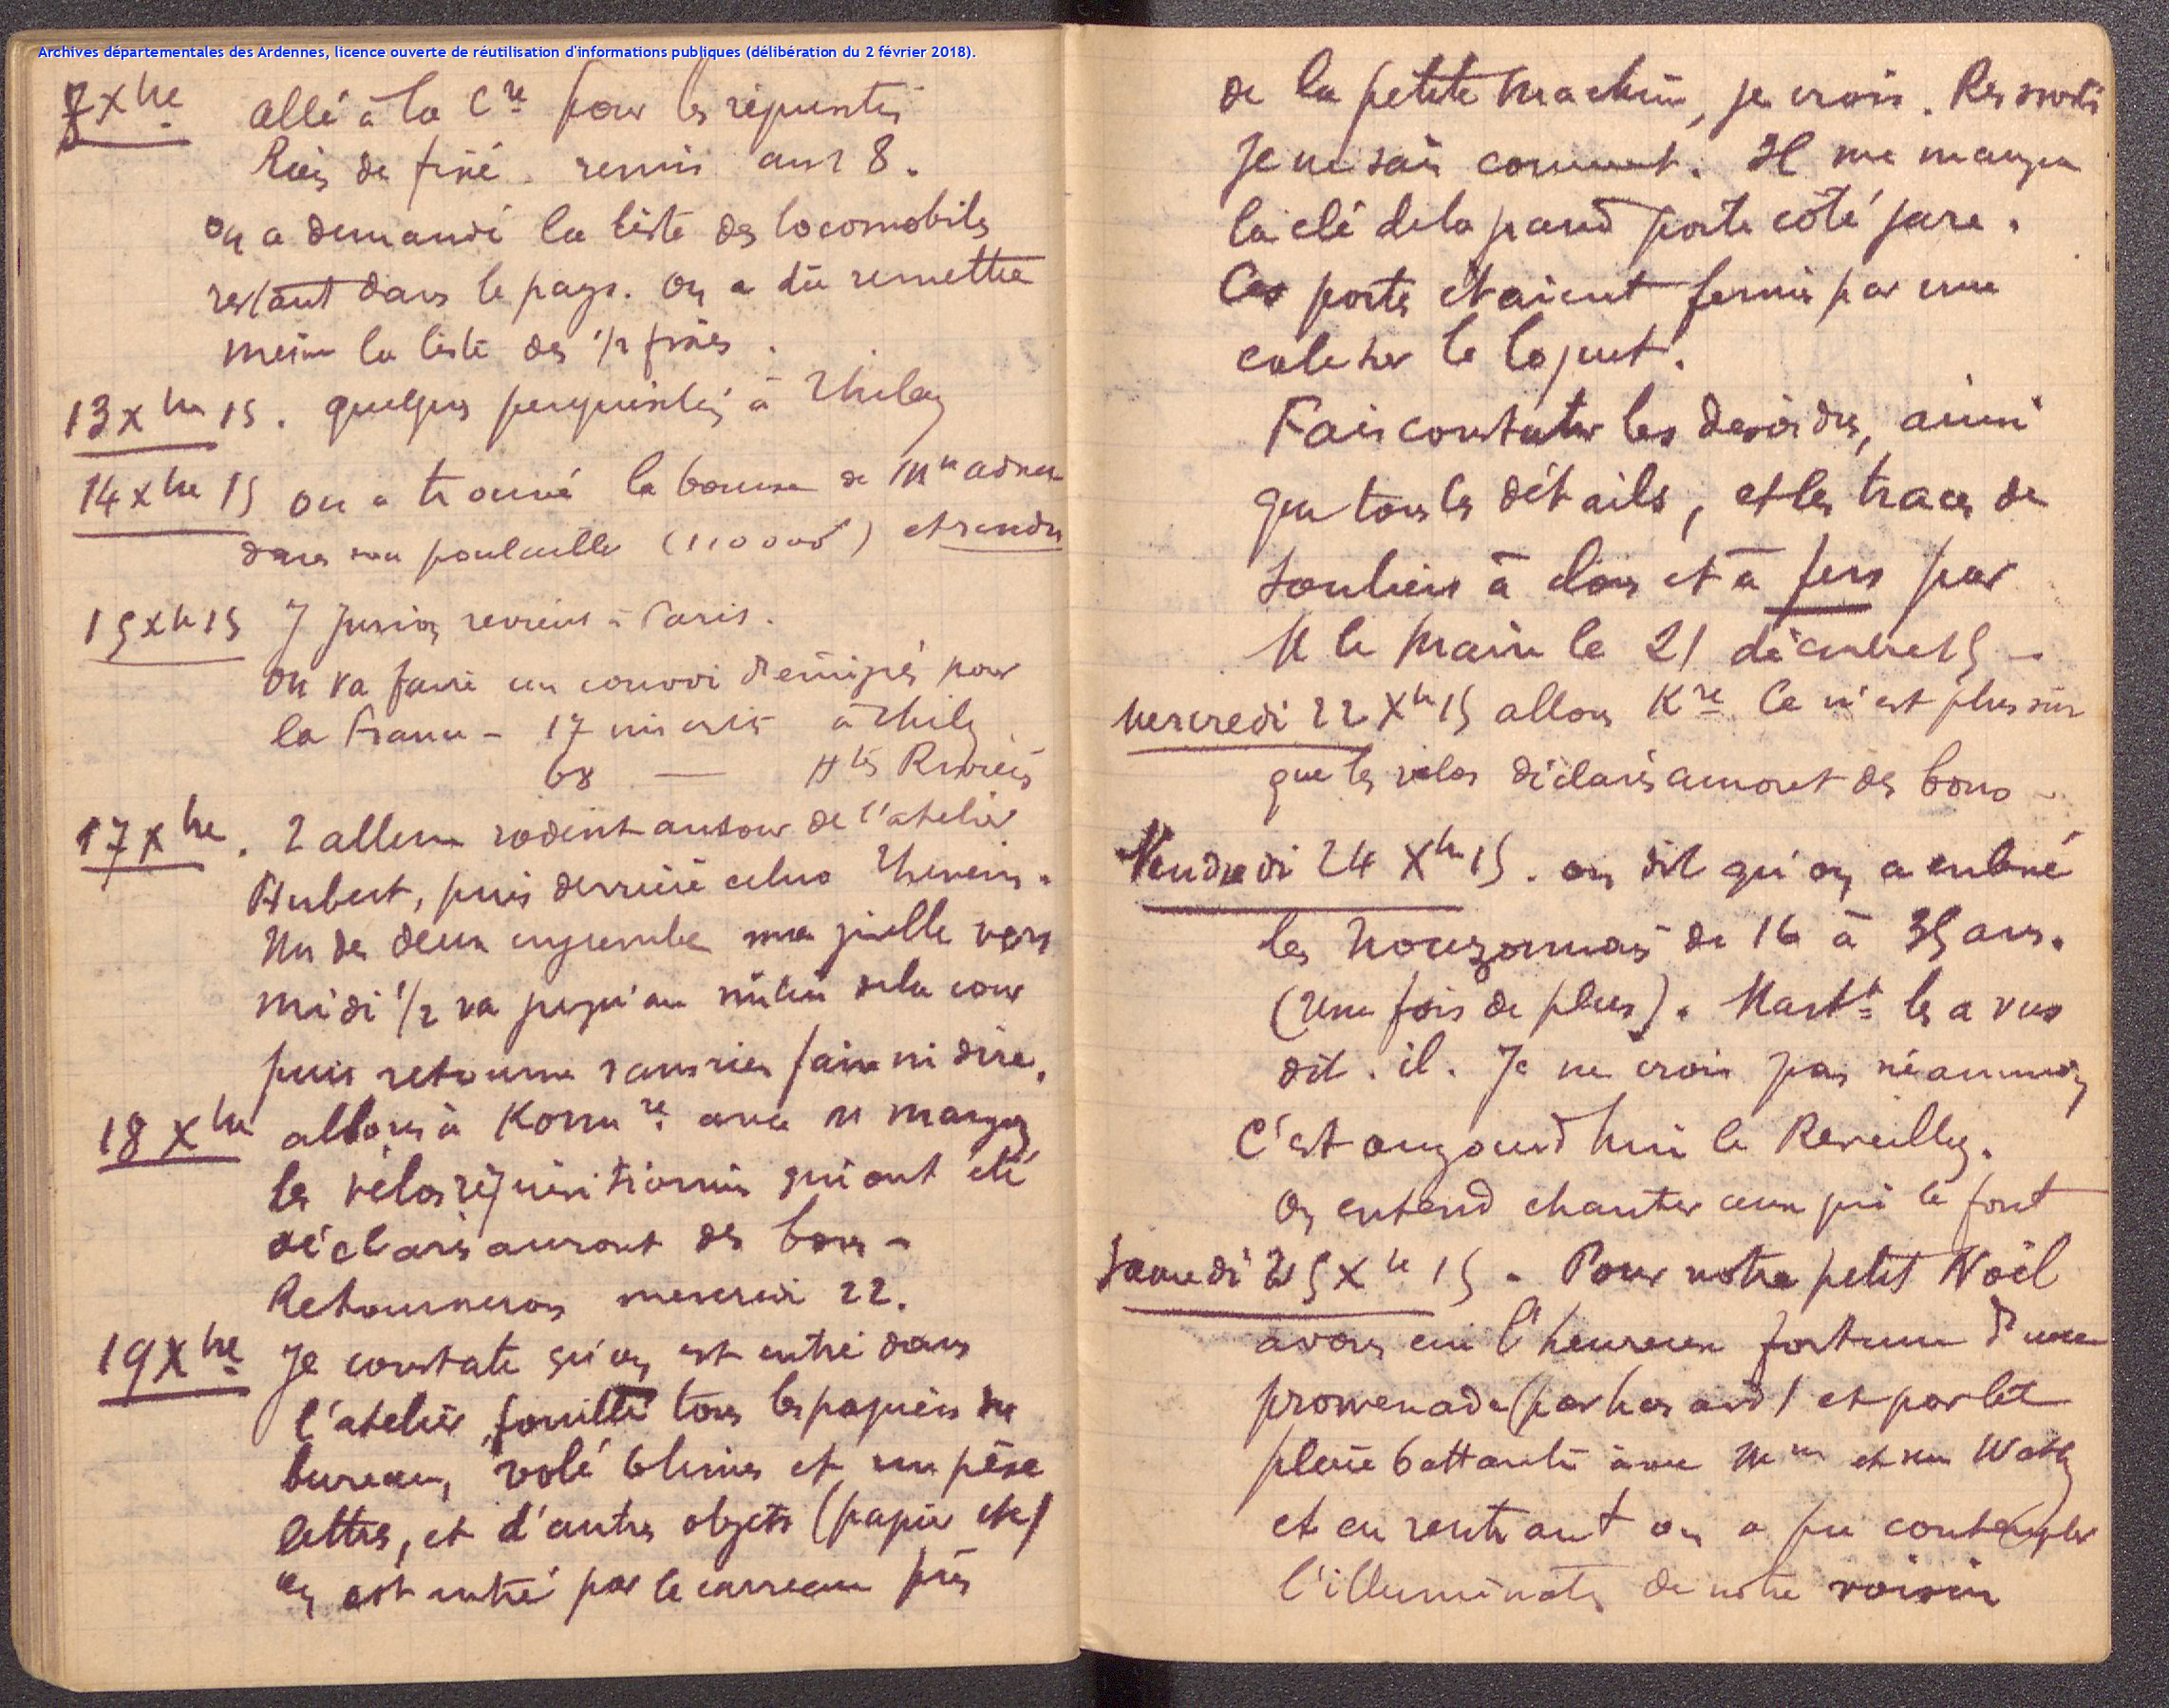 Archives départementales des Ardennes, licence ouverte de réutilisation d'informations publiques (délibération du 2 février 2018).
7 Xbre allé à la Cre pour les réquisitions
Rien de fixé. remis au 18.
on a demandé la liste des locomobiles
restant dans le pays. on a dû remettre
même la liste des 1/2 fixes.
13 Xbre 15. quelques perquisitions à Thilay
14 Xbre 15 on a trouvé la bourse de Mme
dans son poulailler (11000f) et rendu
15 Xbre 15 revient à Paris.
on va faire un convoi d'émigrés pour
la France - 17 inscrits à Thilay
68 — Htes Rivières
17 Xbre. 2 allem rodent autour de l'atelier
Hubert, puis derrière celui Thevenin.
Un des deux enjambe ma grille vers
midi 1/2 va jusqu'au milieu de la cour
puis retourne sans rien faire ni dire.
18 Xbre allons à Komre avec M
les vélos réquisitionnés qui ont été
déclarés auront des bons -
Retournerons mercredi 22.
19 Xbre Je constate qu'on est entré dans
l'atelier, fouillé tous les papiers du
bureau, volé 6 limes et un pèse
lettres, et d'autres objets (papier etc)
on est entré par le carreau près
de la petite machine, je crois. Ressorti
je ne sais comment. Il me manque
la clé de la grand porte côté gare.
Ces portes étaient fermées par une
cale sur le loquet.
Fais constater les désordres, ainsi
que tous les détails, et les traces de
souliers à clous et à fers par
M le Maire le 21 décembre 15 -
Mercredi 22 Xbre 15 allons Kre Ce n'est plus sûr
que les vélos déclarés auront des bons -
Vendredi 24 Xbre 15. on dit qu'on a
les Nouzonnais de 16 à 35 ans.
(Une fois de plus). les a vus
dit-il. Je ne crois pas néanmoins
C'est aujourd'hui le Reveillon.
On entend chanter ceux qui le font
Samedi 25 Xbre 15. Pour notre petit Noël
avons eu l'heureuse fortune d'une
promenade (par hasard) et par
pluie battante avec Mme et
et en rentrant on a pu contempler
l'illumination de notre voisin